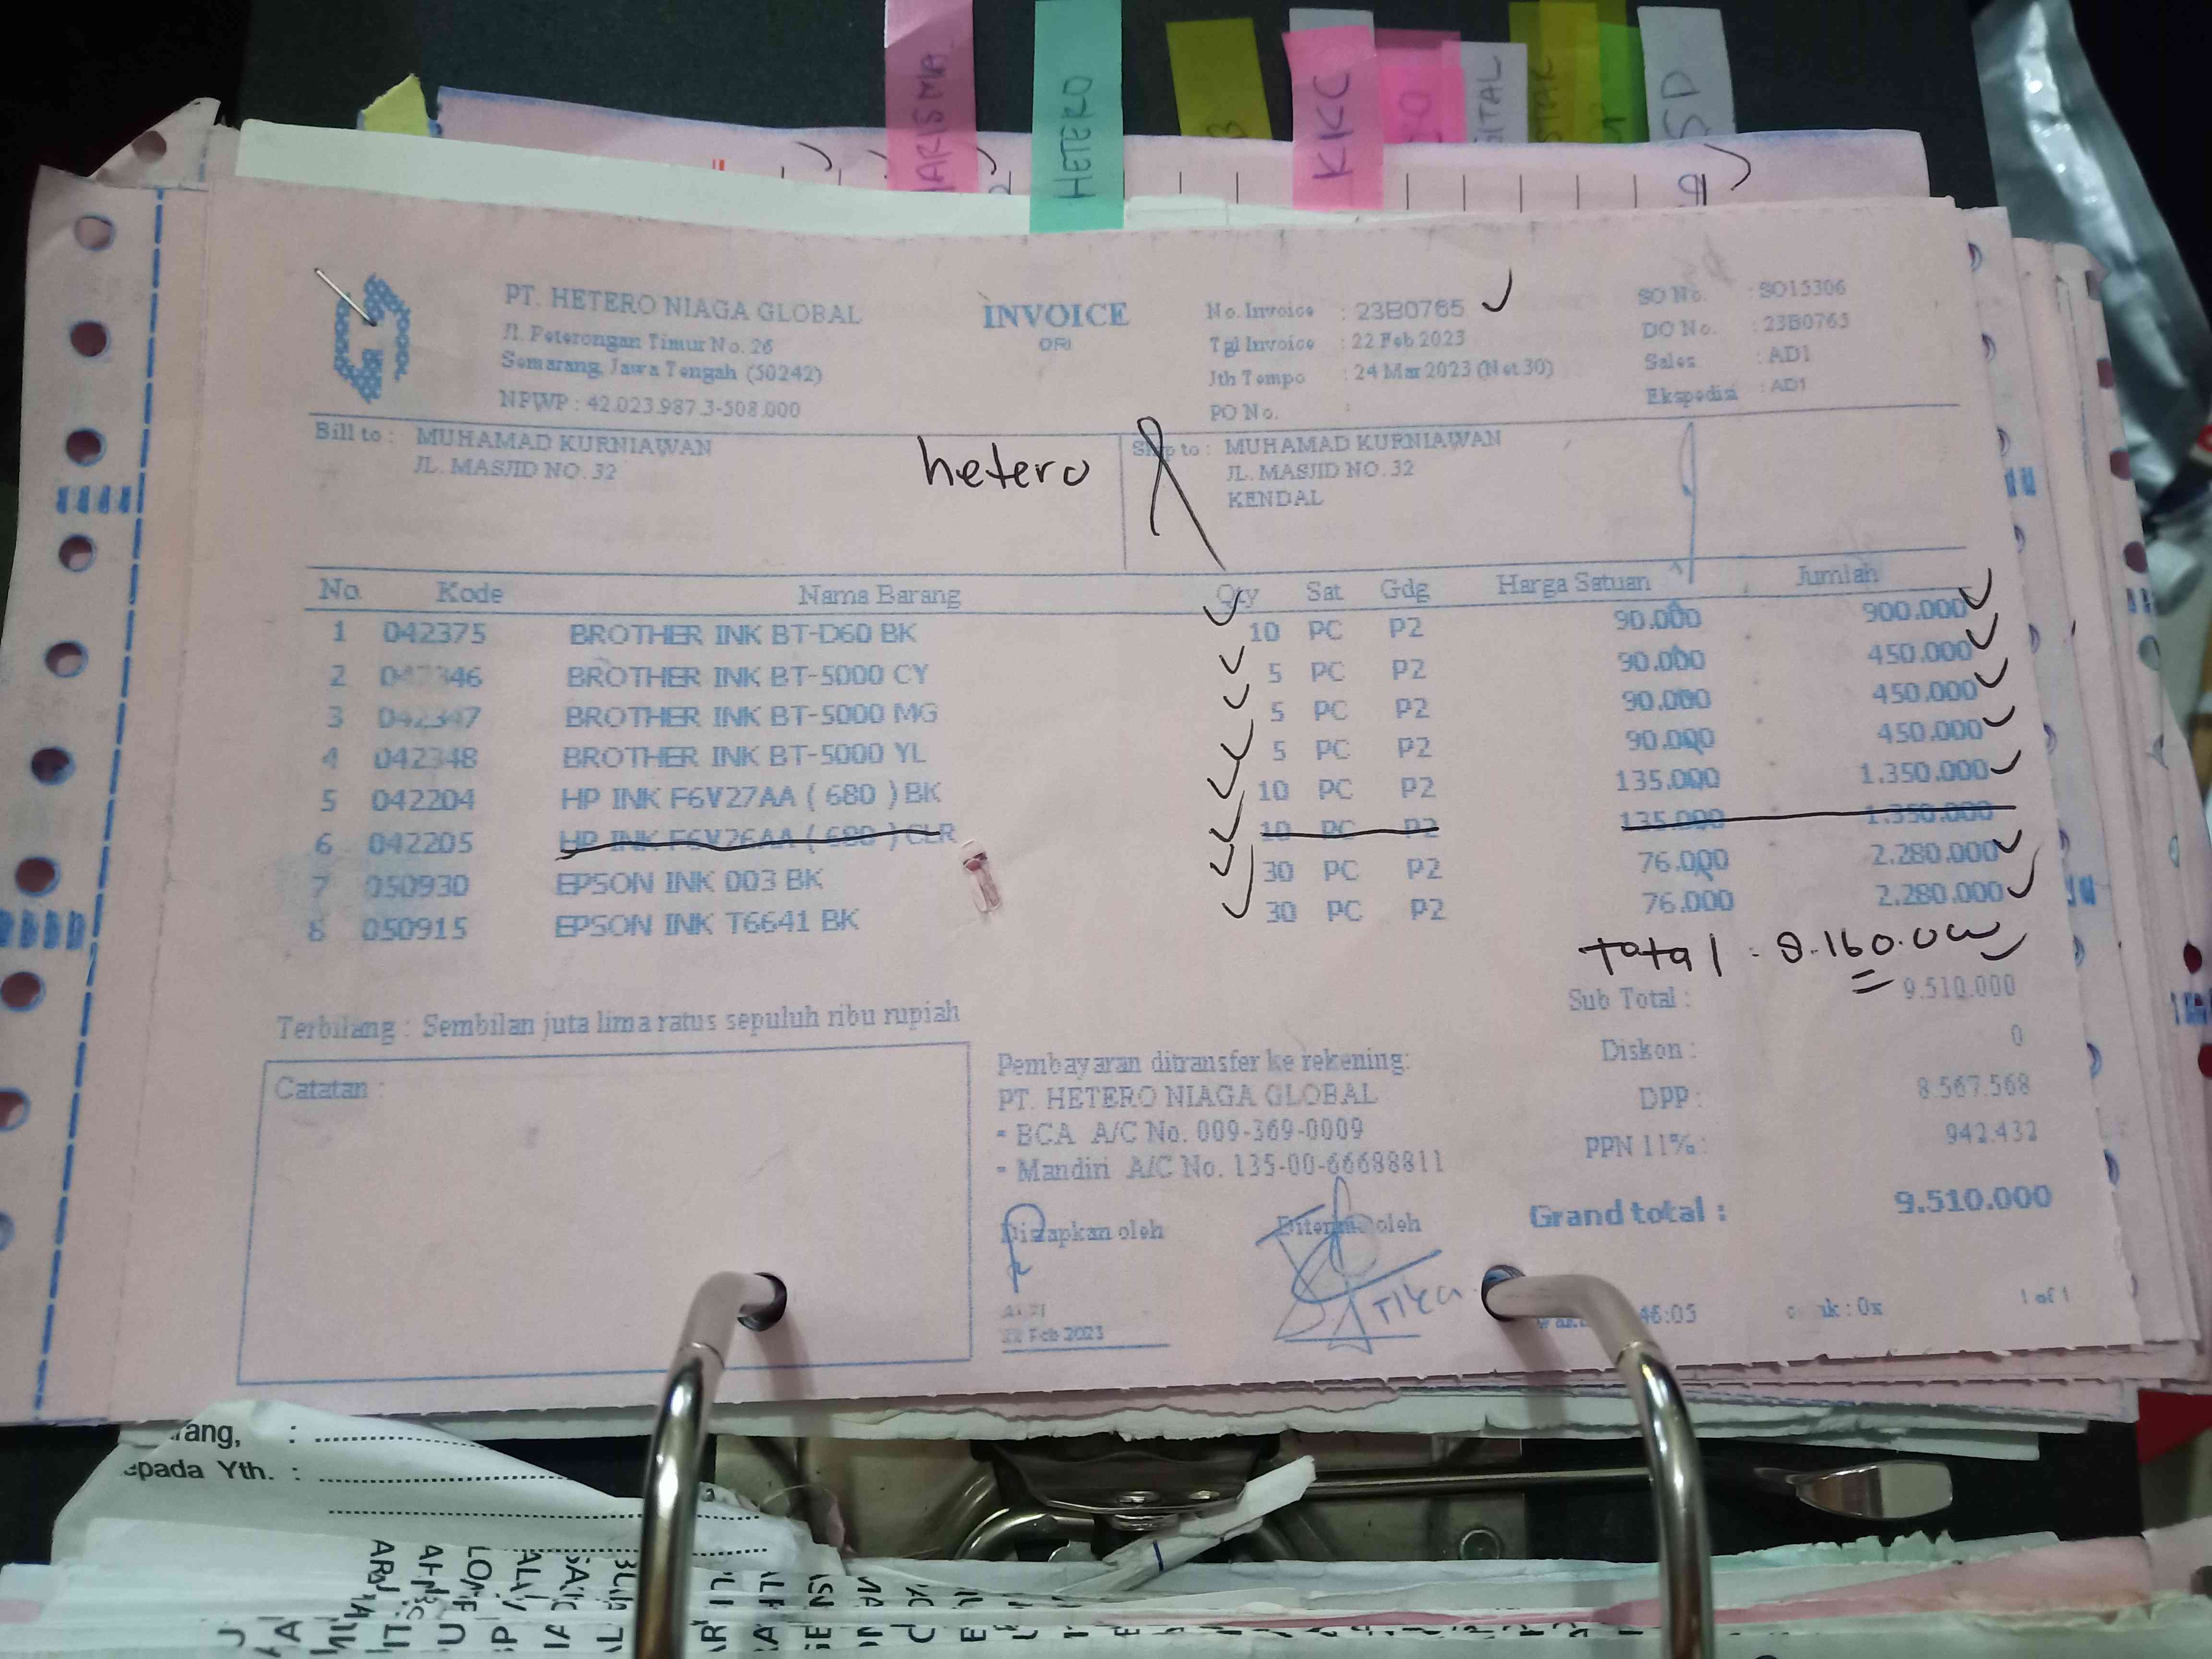 HETERO
KKC
PT. HETERO NIAGA GLOBAL
Jl. Peterongan Timur No. 26
Semarang, Jawa Tengah (50242)
NPWP : 42.023.987.3-508.000
INVOICE
ORI
No. Invoice : 23B0765
Tgl Invoice : 22 Feb 2023
Jth Tempo : 24 Mar 2023 (Net 30)
PO No. :
SO No. : SO15306
DO No. : 23B0765
Sales : AD1
Ekspedisi : AD1
Bill to : MUHAMAD KURNIAWAN
JL. MASJID NO. 32
hetero
Ship to : MUHAMAD KURNIAWAN
JL. MASJID NO. 32
KENDAL
No. Kode Nama Barang Qty Sat Gdg Harga Satuan Jumlah
1 042375 BROTHER INK BT-D60 BK 10 PC P2 90.000 900.000
2 042346 BROTHER INK BT-5000 CY 5 PC P2 90.000 450.000
3 042347 BROTHER INK BT-5000 MG 5 PC P2 90.000 450.000
4 042348 BROTHER INK BT-5000 YL 5 PC P2 90.000 450.000
5 042204 HP INK F6V27AA ( 680 ) BK 10 PC P2 135.000 1.350.000
6 042205 HP INK F6V26AA ( 680 ) CLR 10 PC P2 135.000 1.350.000
7 050930 EPSON INK 003 BK 30 PC P2 76.000 2.280.000
8 050915 EPSON INK T6641 BK 30 PC P2 76.000 2.280.000
Total : 8.160.000
Sub Total : 9.510.000
Diskon : 0
DPP : 8.567.568
PPN 11% : 942.432
Grand total : 9.510.000
Terbilang : Sembilan juta lima ratus sepuluh ribu rupiah
Catatan :
Pembayaran ditransfer ke rekening:
PT. HETERO NIAGA GLOBAL
- BCA A/C No. 009-369-0009
- Mandiri A/C No. 135-00-66688811
Disiapkan oleh
Diterima oleh
22 Feb 2023
Tika
46:05
: 0x
1 of 1
epada Yth. :